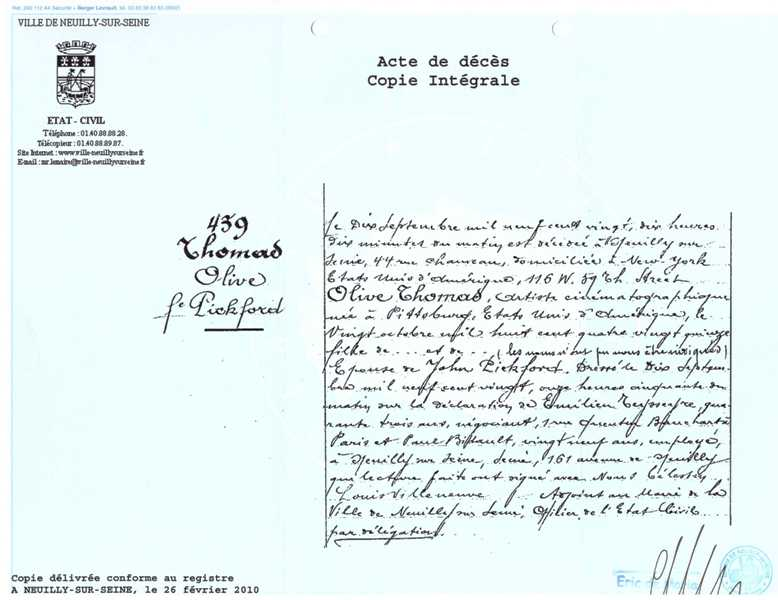 VILLE DE NEUILLY-SUR-SEINE
ETAT - CIVIL
Téléphone : 01.40.88.88.28.
Télécopieur : 01.40.88.89.87.
Site Internet : www.ville-neuillysurseine.fr
E-mail : mr.lemaire@ville-neuillysurseine.fr
Acte de décès
Copie Intégrale
439
Thomas
Olive
fe Pickford
Le Dix Septembre mil neuf cent vingt, dix heures
dix minutes du matin est décédée à Neuilly sur
Seine, 44 rue Chauveau, domiciliée à New-York
Etats Unis d'Amérique, 116 W. 59 Th. Street
Olive Thomas, Artiste cinématographique
née à Pittsburg, Etats Unis d'Amérique, le
Vingt octobre mil huit cent quatre vingt quinze
fille de ... et de ... (les noms n'ont pu nous être indiqués)
Epouse de John Pickford. Dressé le Dix Septem-
bre mil neuf cent vingt, onze heures cinquante du
matin sur la déclaration de Emilien Teysseyre, qua-
rante trois ans, négociant, 1 rue Quentin Bauchart à
Paris et Paul, vingt neuf ans, employé,
à Neuilly sur Seine, 161 avenue de Neuilly
que lecture faite ont signé avec Nous Célestin
Louis Villeneuve Adjoint au Maire de la
Ville de Neuilly sur Seine, Officier de l'Etat Civil
par délégation.
Copie délivrée conforme au registre
A NEUILLY-SUR-SEINE, le 26 février 2010
Eric